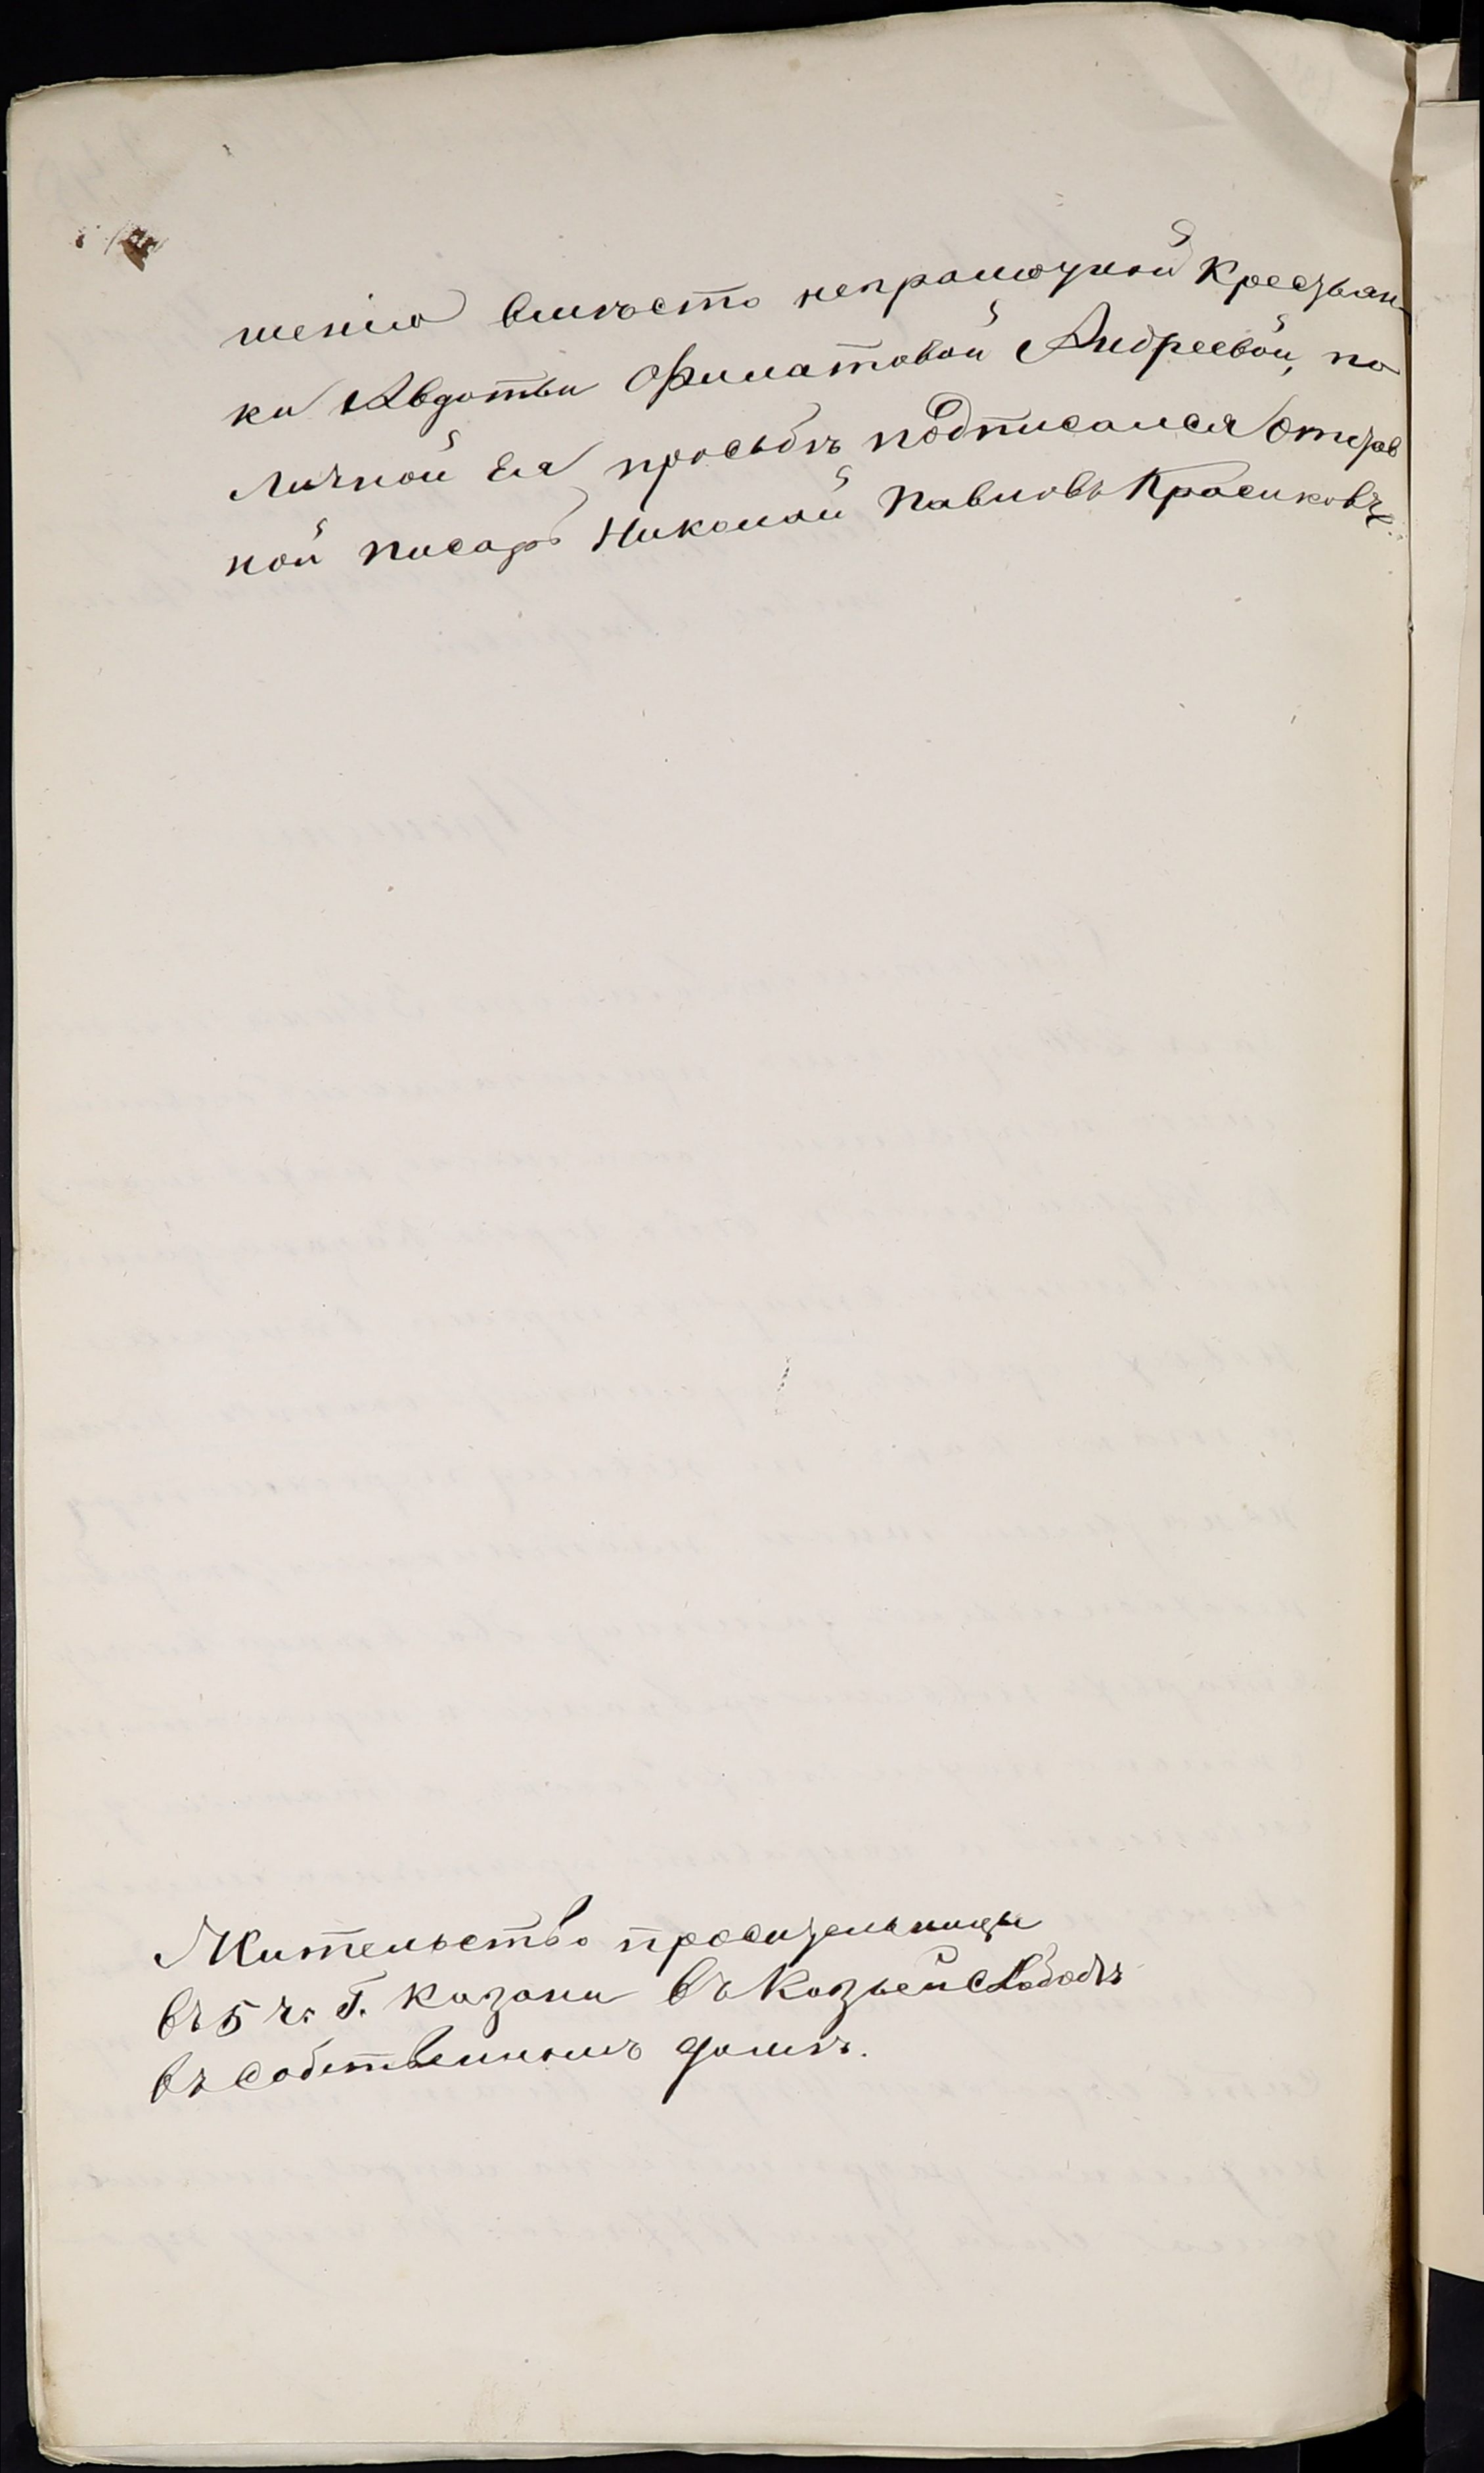 шенію вмѣсто неграмотной Крестьян
ки Авдотьи Филатовой Андреевой, по
личной Ея просьбѣ подписался отстав
ной писарь Николай Павловъ Красиковъ.
Жительство просительницы
въ 5 ч. г. Казани въ Козьей Слободѣ
въ собственномъ домѣ.